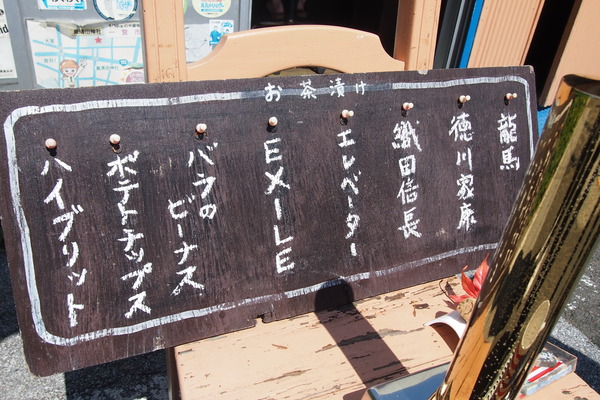 お茶漬け
龍馬
徳川家康
織田信長
エレベーター
EXILE
バラの
ビーナス
ポテトチップス
ハイブリット